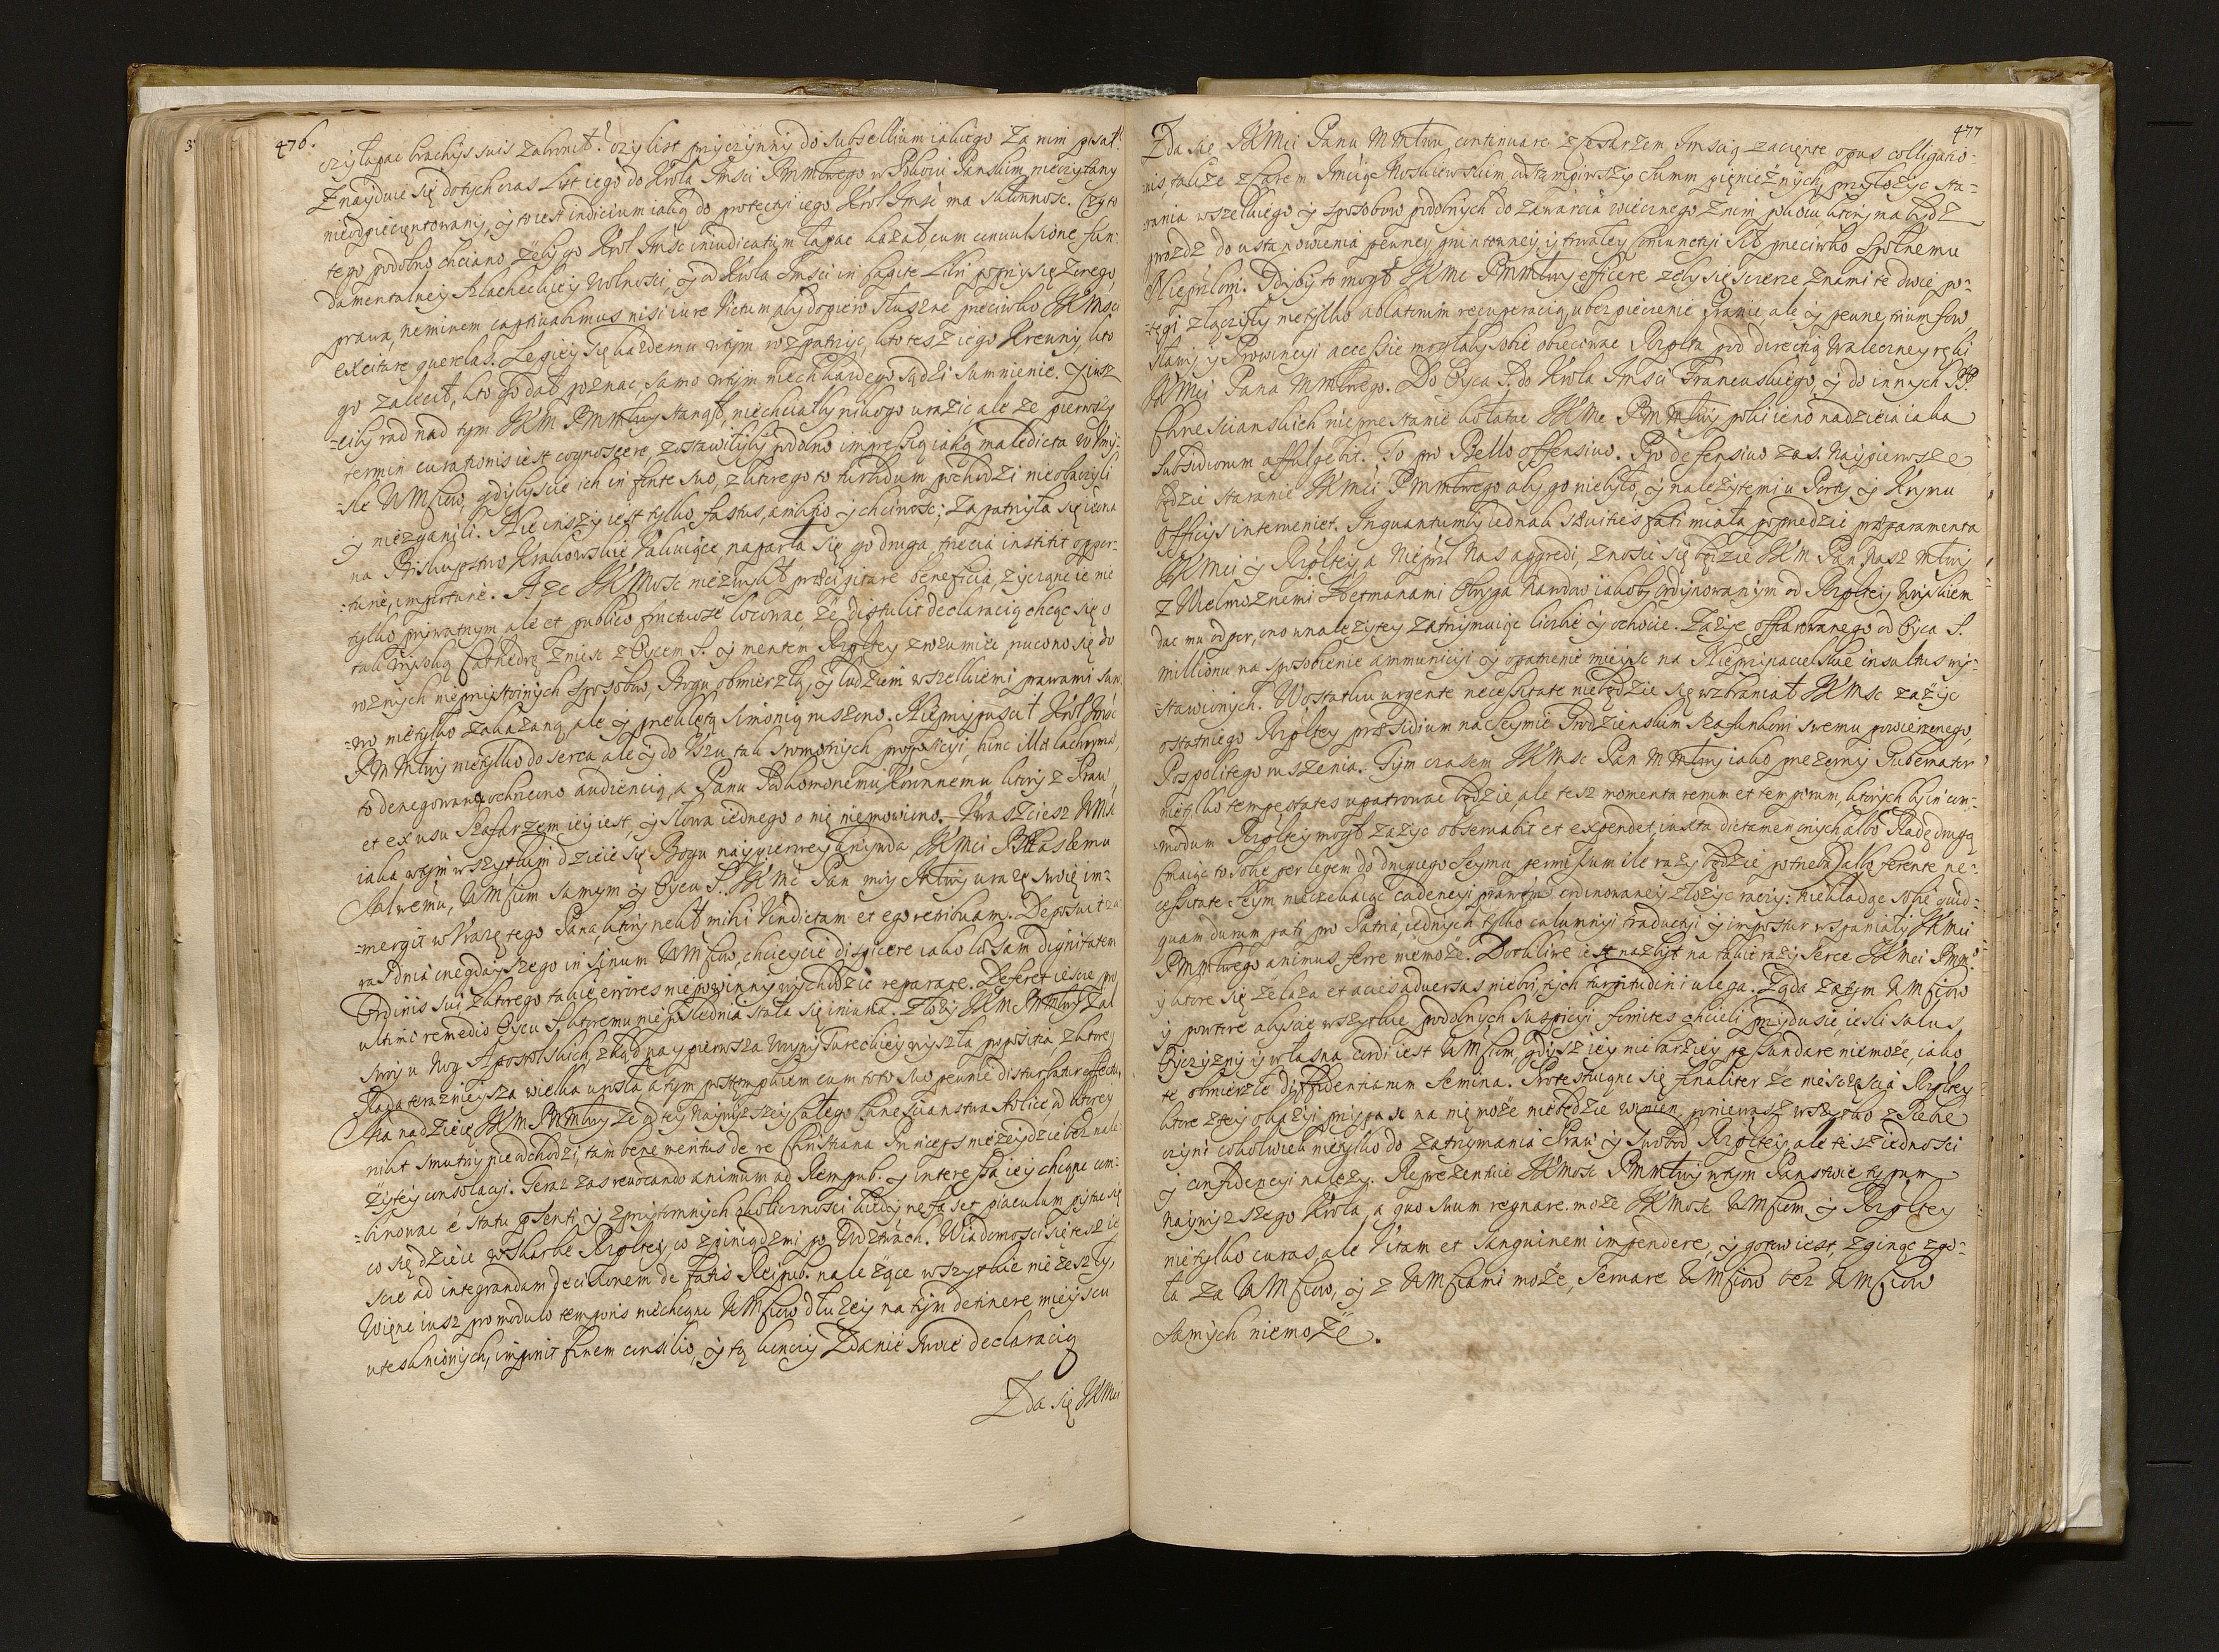 476.
czy łapac brachijs suis zabronił? czy list przyczynny do subsellium iakiego za nim pisał?
Znayduie się dotychczas List iego do Krola Jmsci PMMłwego w Pokoiu Panskim nieczytany
nieodpieczętowany, y to iest indicium iakiey do protectyi iego Krol Jmsć ma skłonnosc. Czy to
tego podobno chciano żeby go Krol Jmsć iniudicatum łapac kazał cum convulsione fun-
damentalney Szlacheckiey Wolnosci, y od Krola Jmsci in capite Libri poprzysięzonego
prawa, neminem captivabimus nisi iure Victum aby dopiero słuszne przeciwko JKMsci
excitare querelas. Lepiey się każdemu w tym wzpatrzyc, kto tesz iego Krewny, kto
go zalecał, kto go dał poznac, samo w tym niech każdego sądzi sumnienie. y iusz
-ciby rad nad tym JKM PMMłwy stanął, niechciałby nikogo urazic ale ze pierwszy
termin curationis iest cognoscere, zostawiłyby podobno impressią iakąs maledicta w Umy-
-sle WMsciow, gdybyscie ich in fonte suo, z ktorego to turbidum pochodzi nieobaczyli
y nie zganili. Nie inszy iest tylko fastus, ambitio y chciwosc; zapatrzyła się iedna
na Biskupstwo Krakowskie Vakuiące, naparła się go druga, trzecia institit oppor-
-tunè, importunè. A ze JKMosc niezwykł praecipitare beneficia, życząc ie nie
tylko prywatnym, ale et publico fructuosè locowac, że distulit declaracią chcąc się o
tak wysoką Cathedrę zniesc z Oycem S. y mentem Rzpltey zrozumiec, rzucono się do
roznych nieprzystoynych sposobow, Bogu obmierzłą, y ludziom wszelkiemi prawami suro-
-wo nietylko zakazaną, ale y przeklętą simonią ruszono. Nieprzypuscił Krol Jmsć
PMMłwy nietylko do serca ale y do Uszu tak sromotnych propositiy, hinc illae lachrymae,
to denegowaną ochrzczono audiencią, a Panu Podkomorzemu Koronnemu ktory z Praw
et ex usu szafarzem iey iest, y słowa iednego o nię niemowiono. Uwaszciesz WMsc
iaka w tym wszytkim dzieie się Bogu naypierwey krzywda JKMci PNaszemu
Miłwemu, WMsciom samym y Oycu S. JKMć Pan moy Młwy urazę swoię im-
-mergit w Urazę tego Pana, ktory rzekł mihi Vindictam et ego retribuam. Deposuit za
raz dnia onegdayszego in sinum WMsciow, chcieycie dispicere iako laesam dignitatem
Ordinis sui, z ktorego takie errores niepowinny wychodzic reparare. Deferet iescze pro
ultimo remedio Oycu S. ktoremu nie poslednia stała się iniuria. Złoży JKMć PMMłwy zal
swoy u Nog Apostolskich, zkąd naypierwsza woyny Tureckiey wyszła propositia, z ktorey
Rada terazniejsza wielka urosła, a tym postępkiem cum toto suo pewnie disturbatur effectu.
Ma nadzieię JKM PMMłwy że od tey naywyższey całego Chrzescianstwa stolice od ktorey
nikt smutny nie wchodzi, tam bene meritus de re Christiana Princeps nieodeydzie bez nale-
żytey consolacyi. Teraz zas revocando animum ad Rempub. y interessa iey chcąc com-
-binowac e statu psenti, y zprzytomnych okolicznosci kiedy nefas et piaculum pytac się
co się dzieie w Skarbie Rzpltey, co z pieniądzmi po Wdztwach. Wiadomosci się tesz ie
scze ad integrandam decisionem de fatis Reipub. należące wszytkie nie zeszły,
Więc iusz pro modulo temporis niechcąc WMsciow dłużey na tym detinere mieyscu
utesknionych, imponit finem consilio, y tą konczy Zdanie swoie declaracią
Zda się JKMci
477
Zda się JKMci Panu MMłwu, continuare z Cesarzem Jmscią zaczęte opus colligatio-
-nis, także z Carem Jmcią Moskiewskim, odstąpiwszy summ pięniężnych, przyłożyc sta-
-rania wszelkiego y sposobow podobnych do zawarcia wiecznego z nim pokoiu, ktory ma bydz
prozdz do ustanowienia pewney gruntowney y trwałey coniunctyi sił przeciwko społnemu
Nieprzłowi. Gdyby to mogł JKMc PMMłwy efficere zeby się scierze z nami te dwie po-
-tęgi złączyły nietylko ablatorum recuperacią, ubezpieczenie Granic ale y pewne triumfow,
sławy y Prowincyi accessie mogłaby sobie obiecowac Rzplta pod directią walecznej ręki
JKMci Pana MMłwego. Do Oyca S. do Krola Jmsci Francuskiego, y do innych PP.
Chrzescianskich nieprzestanie kołatac JKMc PMMłwy poki ieno nadzieia iaka
subsidiorum affulgebit. To pro Bello offensivo. Pro defensivo zas. Naypierwsze
będzie staranie JKMci PMMłwego aby go niebyło, y należytemi u Porty y Krymu
officijs interveniet. Inquantumby iednak saevities fati miała poprzedzic praeparamenta
JKMci y Rzpltey, a Nieprzł Nas aggredi, znosic się będzie JKM Pan Nasz Młwy
z Wielmożnemi Hetmanami Oboyga Narodow iakoby ordynowanym od Rzpltey Woyskiem
dac mu odpor, ono w należytey zatrzymuiąc liczbie y ochocie. Zażyie offiarowanego od Oyca S.
millionu na sposobienie ammunicyi y opatrzenie mieysc na Nieprzyiacielskie insultus wy-
-stawionych. W ostatku urgente necessitate niebędzie się wzbraniał JKMsc zażyc
ostatniego Rzpltey praesidium na Seymie Grodzienskim szafunkowi swemu powierzonego,
Pospolitego ruszenia. Tym czasem JKMsc Pan MMłwy iako przezorny Gubernator
nietylko tempestates upatrowac będzie, ale tesz momenta rerum et temporum, ktorych by in com-
-modum Rzpltey mogł zażyc observabit et expendet, iuxta dictamen onych albo Radę drugą
(maiąc to sobie per legem do drugiego Seymu permissum ile razy będzie potrzeba) albo ferente ne-
cessitate Seym nieczekaiąc cadencyi prawem ordinowaney złożyc raczy: niekładąc sobie quid-
quam durum pati pro Patria, iednych tylko calumnyi traductyi y impostur wspaniały JKMci
PMMłwego animus ferre niemoże. Dotkliwe iest nazbyt na takie razy serce JKMci PMMgo
y ktore się żelaza et acies adversas nieboi, tych turpitudini ulega. Żąda zatym WMsciow
y powtore abyscie wszytkie podobnych suspicyi fomites chcieli przydusic, iesli salus
Oyczyzny y własna cordi iest WMsciom, gdysz iey nic barziey pessundare niemoże, iako
te obmierzłe diffidentiarum semina. Protestuiąc się finaliter że niesczęscia Rzpltey
ktore z tey okazyi przypasc na nię może niebędzie winien, poniewasz wszytko z siebie
czyni cokolwiek nietylko do zatrzymania Praw y Swobod Rzpltey, ale tesz iednosci
y confidencyi należy. Reprezentuie JKMosc PMMłwy w tym Panstwie typum
Naywyższego Krola, a quo suum regnare. może JKMosc WMsciom y Rzpltey
nietylko curas, ale Vitam et Sanguinem impendere, y gotow iest, zginąc zgo-
ła za WMsciow, y z WMsciami może, servare WMsciow bez WMsciow
samych niemoże.